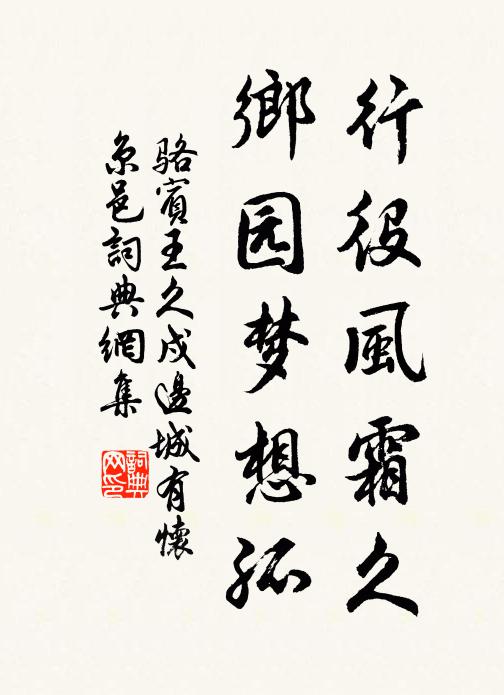 行役風霜久
鄉园梦想孤
駱賓王久戍邊城有懷
京邑詞典網集
詞典
网印